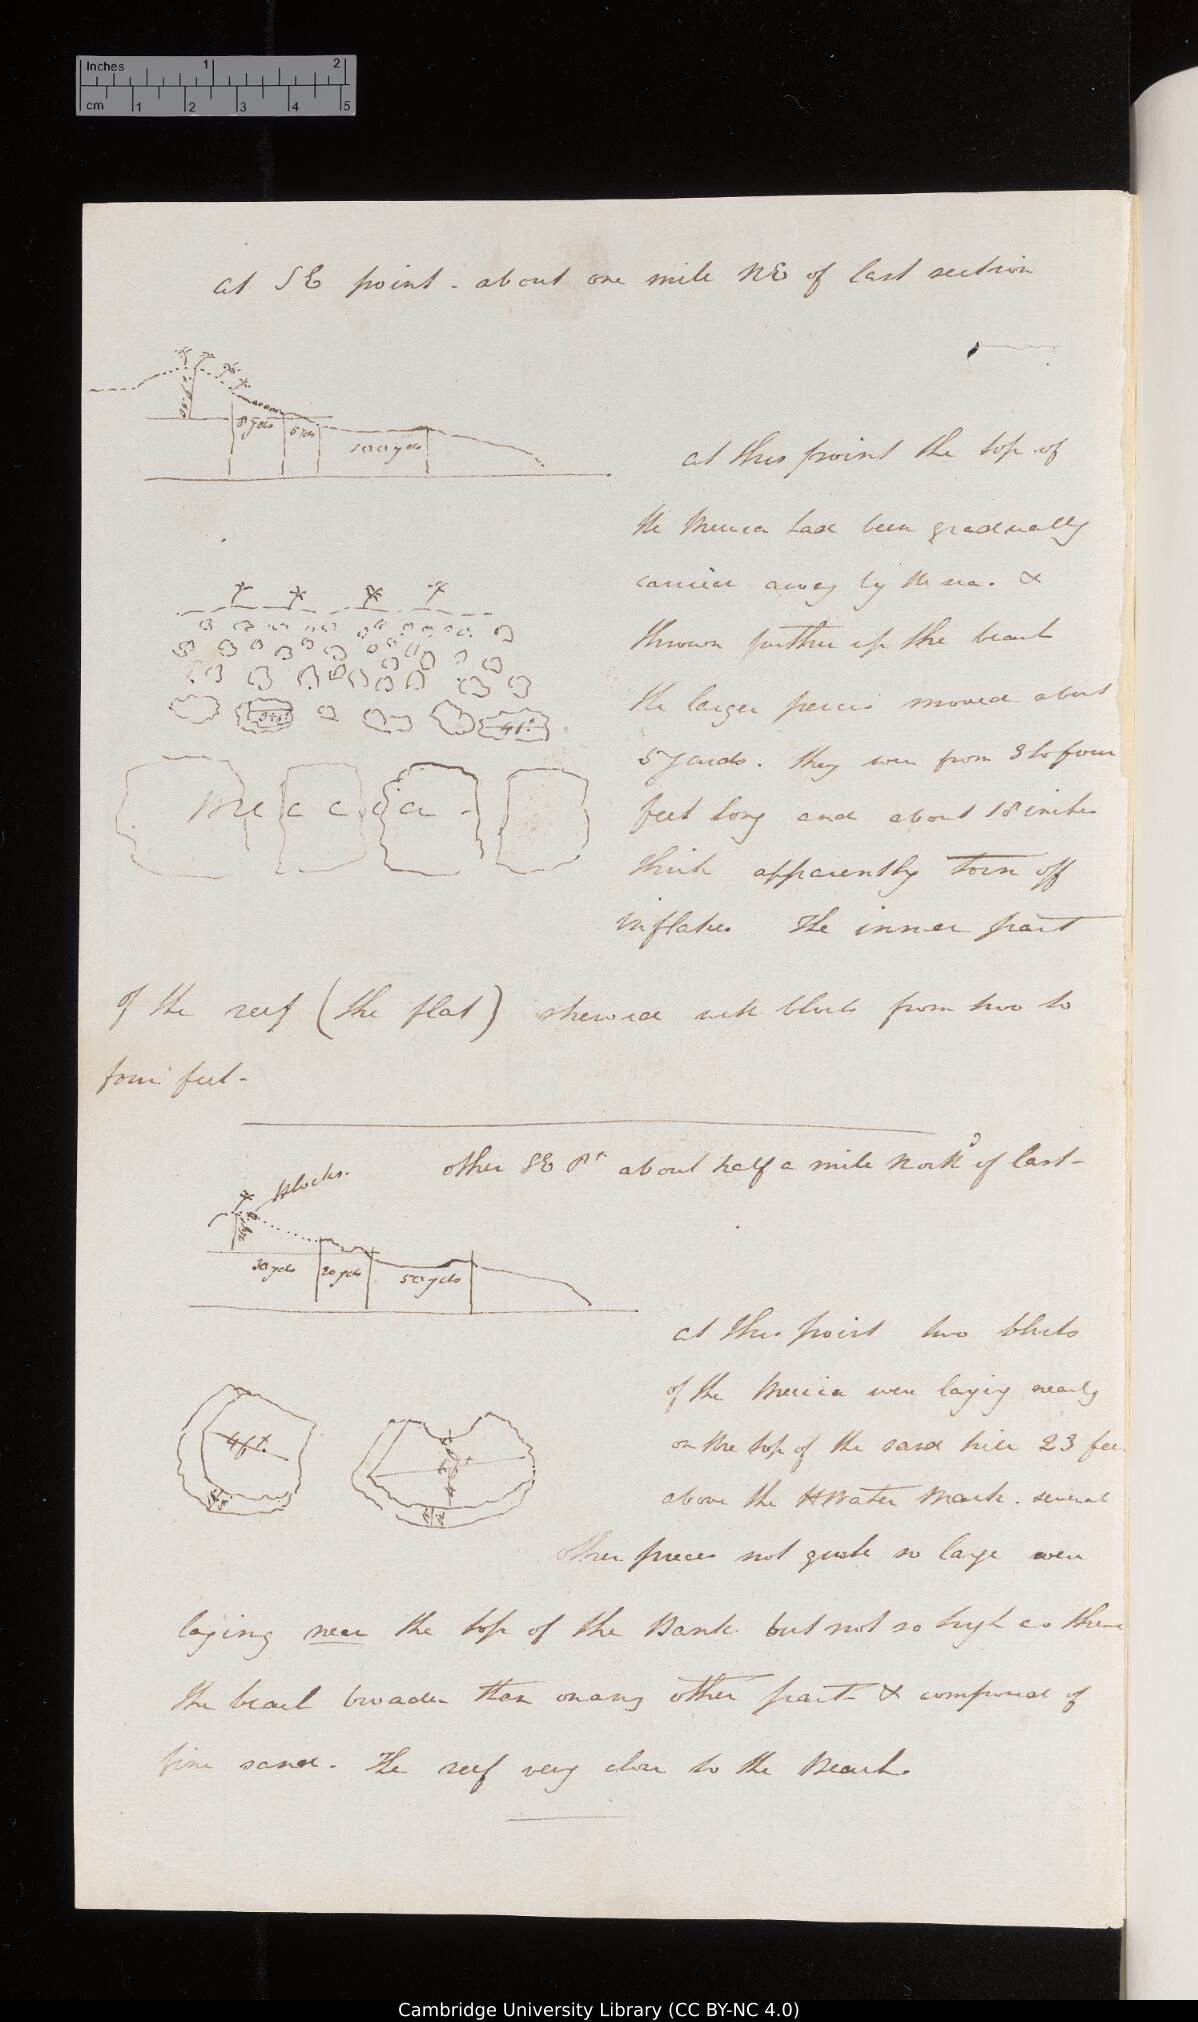 Inches 1 2
cm 1 2 3 4 5
at SE point - about one mile NE of last section
8 yds 5 yds 100 yds
at this point the top of
the Meccia had been gradually
carried away by the sea. &
thrown further up the beach
the larger peices moved about
5 yards. they were from 3 to four
feet long and about 18 inches
thick apparently torn off
in flakes The inner part
4 ft.
Meccia -
of the reef (the flat) strewed with blocks from two to
four feet -
other SE Pt about half a mile North d of last -
Blocks.
30 yds 20 yds 50 yds
at this point two blocks
of the Meccia were laying nearly
on the top of the sand hill 23 fee
above the HWater Mark. several
other pieces not quite so large were
4 ft.
laying near the top of the Bank but not so high as these
the beach broader than on any other part & composed of
fine sand. The reef very close to the Beach.
Cambridge University Library (CC BY-NC 4.0)